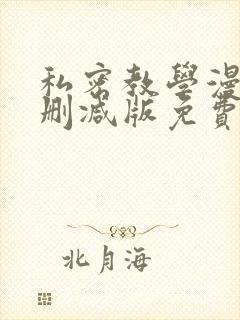 私密教學漫
刪減版免費
北月海